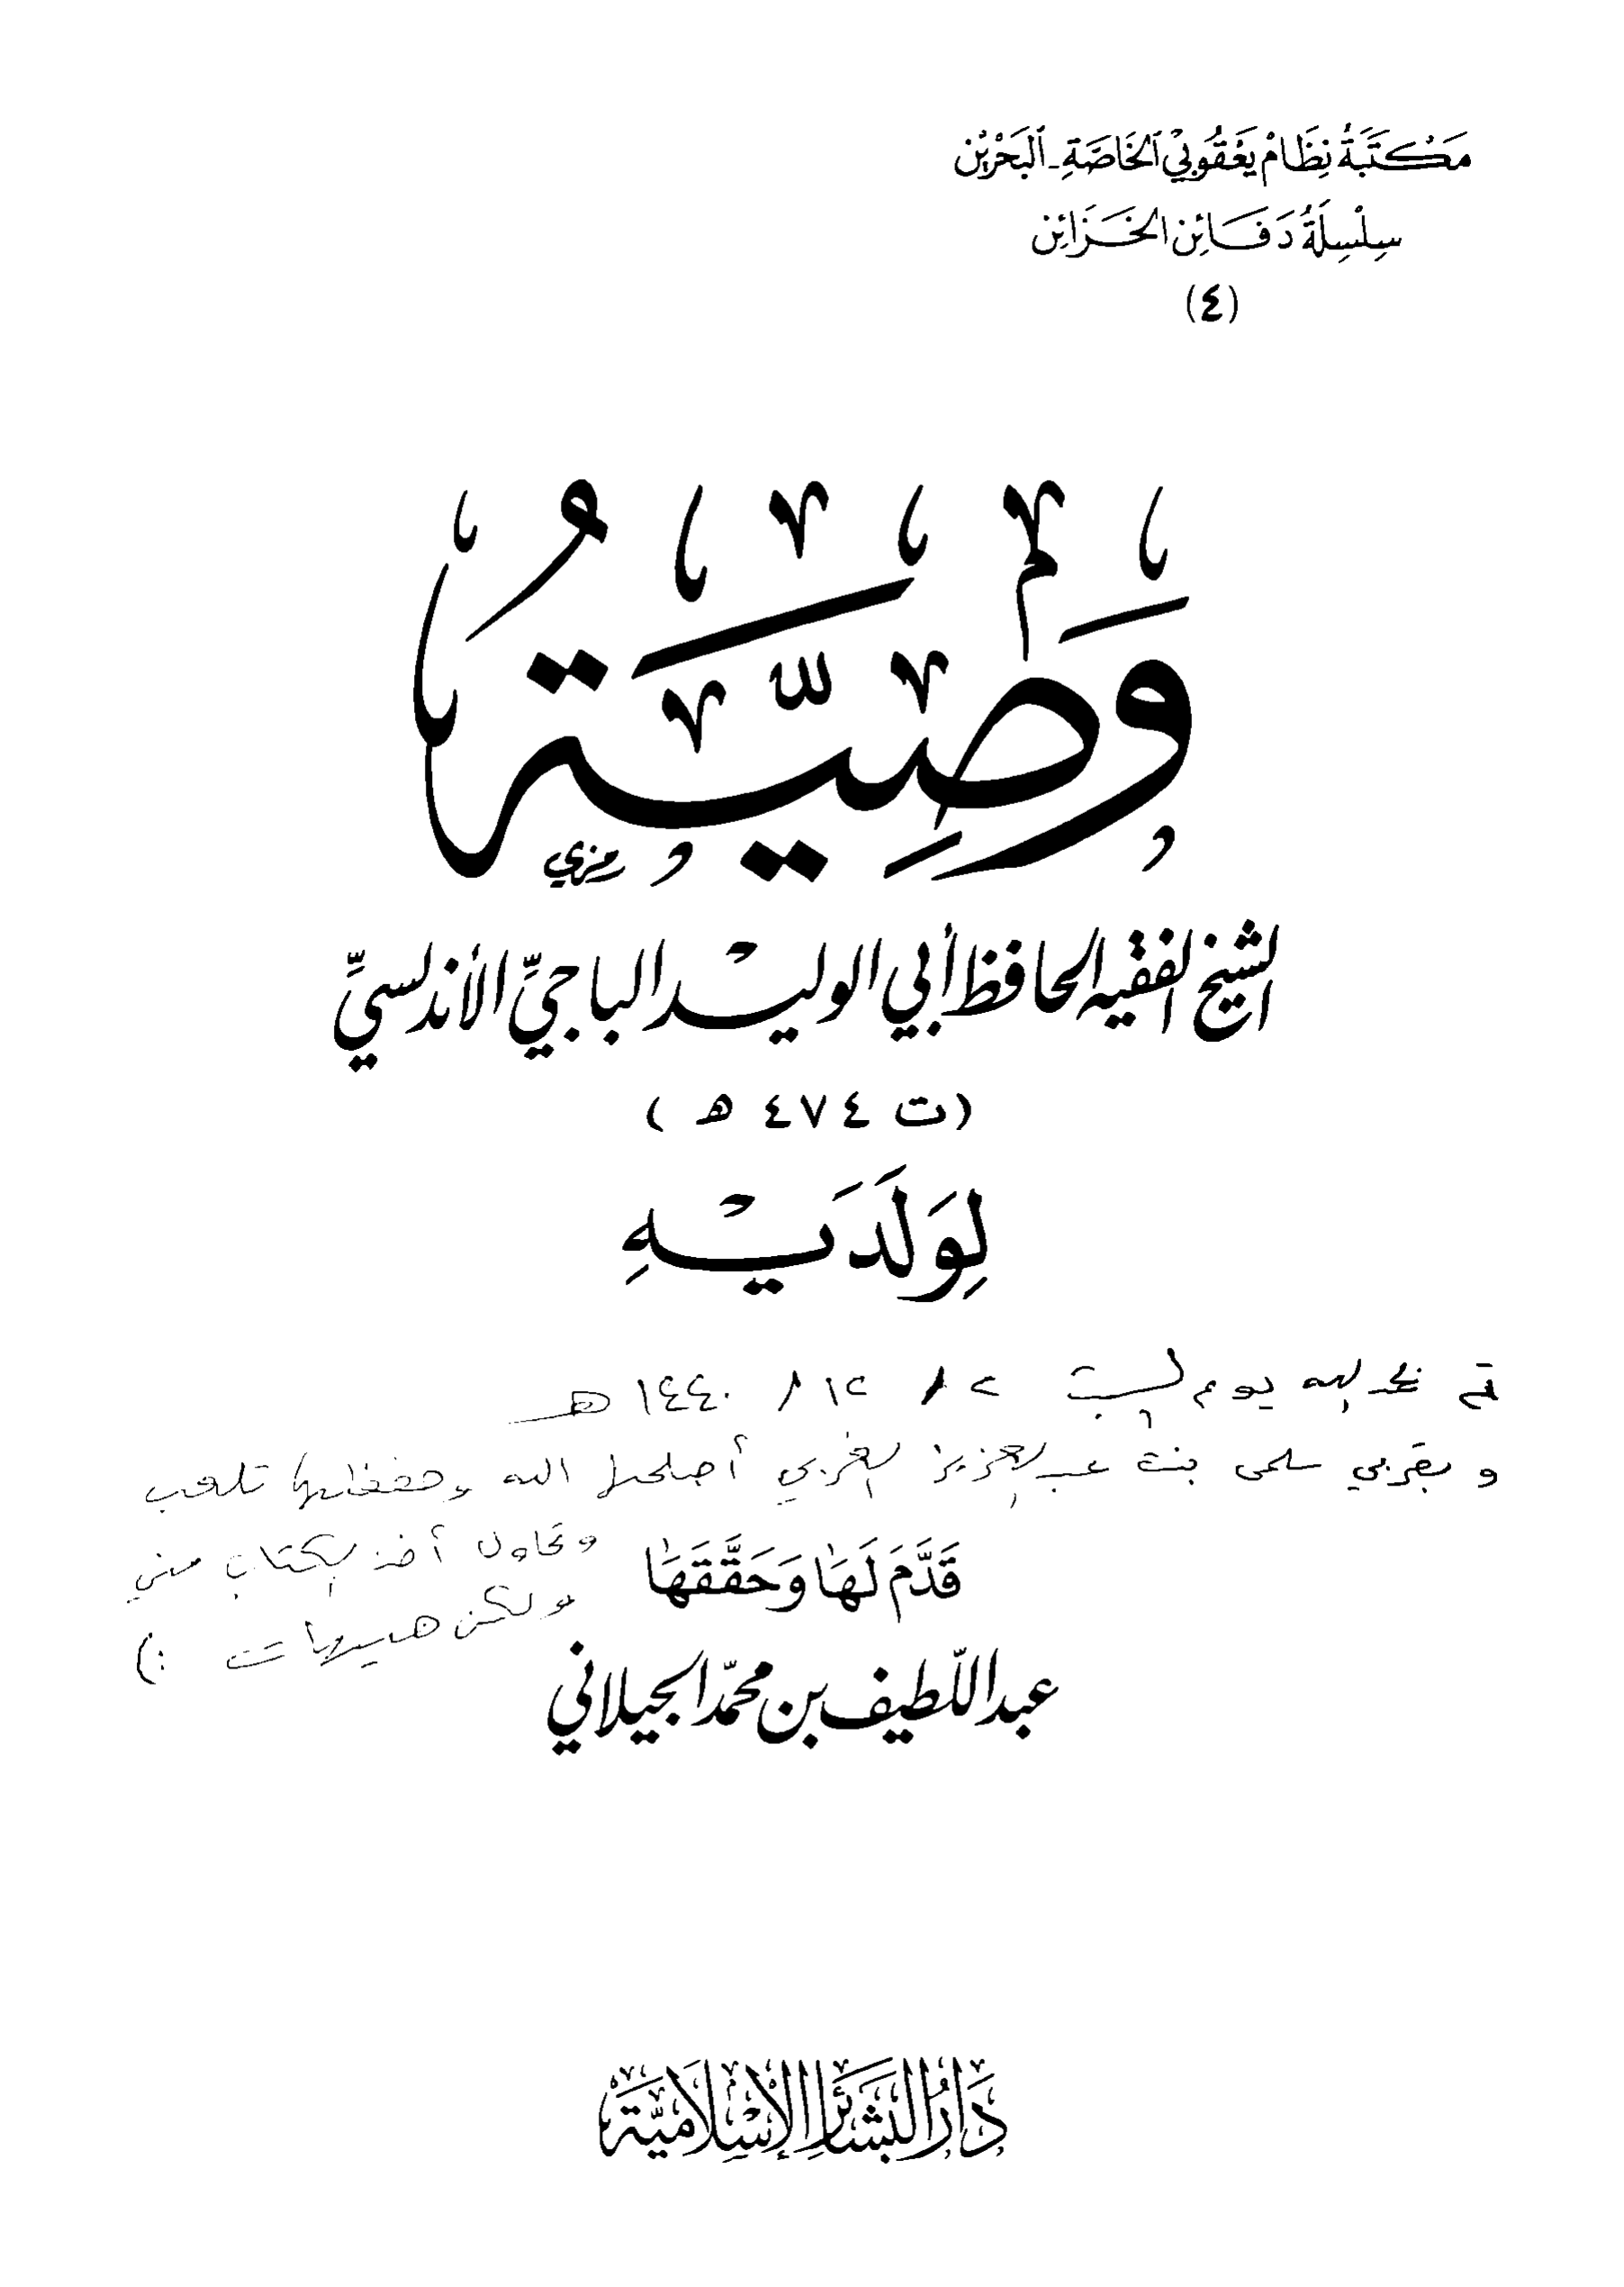 مَكتَبَةُ نِظَام يَعْقُوبي الخَاصَّةِ - البَحْرَيْن
سِلْسِلَةُ دَفَائِن الخَزَائِن
(٤)
وَصِيَّةُ
رمزي
الشيخ الفقيه الحافظ أبي الوليْد الباجيِّ الأندلسيِّ
(ت ٤٧٤ هـ)
لِوَلَدَيْهِ
تم بحمد الله يوم السبت ٢ / ١٢ / ١٤٤٠ هـ
و بقربي سلمى بنت عبد العزيز أصلحها الله وحفظها تلعب
وتحاول أخذ الكتاب مني
ولكن هيهات :)
قَدَّمَ لَهَا وَحَقَّقَهَا
عبد اللّطيف بن محمّد الجيلاني
دَارُ البَشَائِرِ الإِسْلَامِيَّة